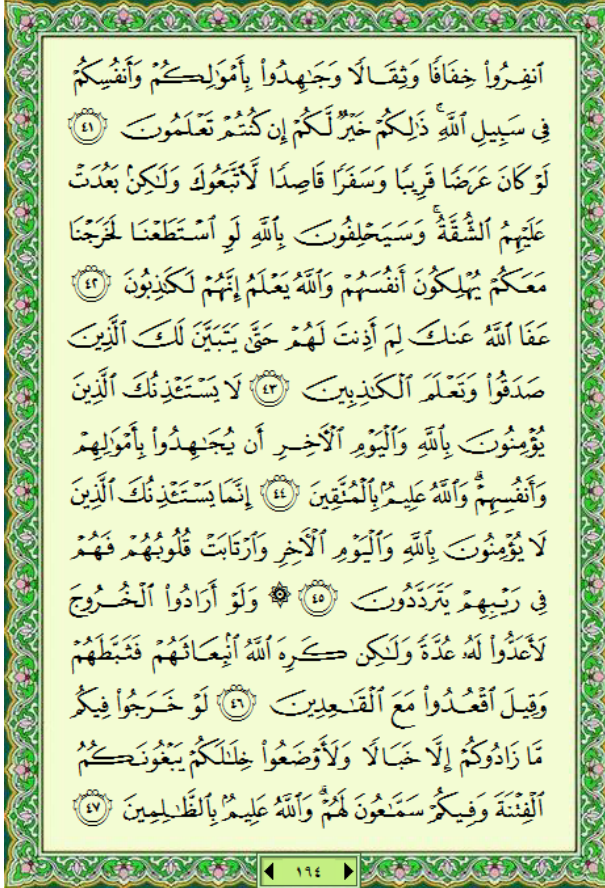 ٱنفِرُوا۟ خِفَافًا وَثِقَالًا وَجَـٰهِدُوا۟ بِأَمْوَٰلِكُمْ وَأَنفُسِكُمْ
فِى سَبِيلِ ٱللَّهِ ۚ ذَٰلِكُمْ خَيْرٌ لَّكُمْ إِن كُنتُمْ تَعْلَمُونَ ٤١
لَوْ كَانَ عَرَضًا قَرِيبًا وَسَفَرًا قَاصِدًا لَّٱتَّبَعُوكَ وَلَـٰكِنۢ بَعُدَتْ
عَلَيْهِمُ ٱلشُّقَّةُ ۚ وَسَيَحْلِفُونَ بِٱللَّهِ لَوِ ٱسْتَطَعْنَا لَخَرَجْنَا
مَعَكُمْ يُهْلِكُونَ أَنفُسَهُمْ وَٱللَّهُ يَعْلَمُ إِنَّهُمْ لَكَـٰذِبُونَ ٤٢
عَفَا ٱللَّهُ عَنكَ لِمَ أَذِنتَ لَهُمْ حَتَّىٰ يَتَبَيَّنَ لَكَ ٱلَّذِينَ
صَدَقُوا۟ وَتَعْلَمَ ٱلْكَـٰذِبِينَ ٤٣ لَا يَسْتَـْٔذِنُكَ ٱلَّذِينَ
يُؤْمِنُونَ بِٱللَّهِ وَٱلْيَوْمِ ٱلْـَٔاخِرِ أَن يُجَـٰهِدُوا۟ بِأَمْوَٰلِهِمْ
وَأَنفُسِهِمْ ۗ وَٱللَّهُ عَلِيمٌۢ بِٱلْمُتَّقِينَ ٤٤ إِنَّمَا يَسْتَـْٔذِنُكَ ٱلَّذِينَ
لَا يُؤْمِنُونَ بِٱللَّهِ وَٱلْيَوْمِ ٱلْـَٔاخِرِ وَٱرْتَابَتْ قُلُوبُهُمْ فَهُمْ
فِى رَيْبِهِمْ يَتَرَدَّدُونَ ٤٥ ۞ وَلَوْ أَرَادُوا۟ ٱلْخُرُوجَ
لَأَعَدُّوا۟ لَهُۥ عُدَّةً وَلَـٰكِن كَرِهَ ٱللَّهُ ٱنۢبِعَاثَهُمْ فَثَبَّطَهُمْ
وَقِيلَ ٱقْعُدُوا۟ مَعَ ٱلْقَـٰعِدِينَ ٤٦ لَوْ خَرَجُوا۟ فِيكُم
مَّا زَادُوكُمْ إِلَّا خَبَالًا وَلَأَوْضَعُوا۟ خِلَـٰلَكُمْ يَبْغُونَكُمُ
ٱلْفِتْنَةَ وَفِيكُمْ سَمَّـٰعُونَ لَهُمْ ۗ وَٱللَّهُ عَلِيمٌۢ بِٱلظَّـٰلِمِينَ ٤٧
١٩٤